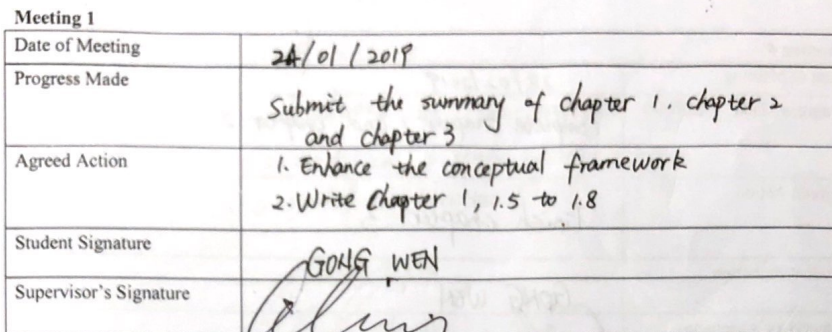 Meeting 1
Date of Meeting
24/01/2019
Progress Made
Submit the summary of chapter 1. chapter 2
and chapter 3
Agreed Action
1. Enhance the conceptual framework
2. Write Chapter 1, 1.5 to 1.8
Student Signature
GONG WEN
Supervisor's Signature